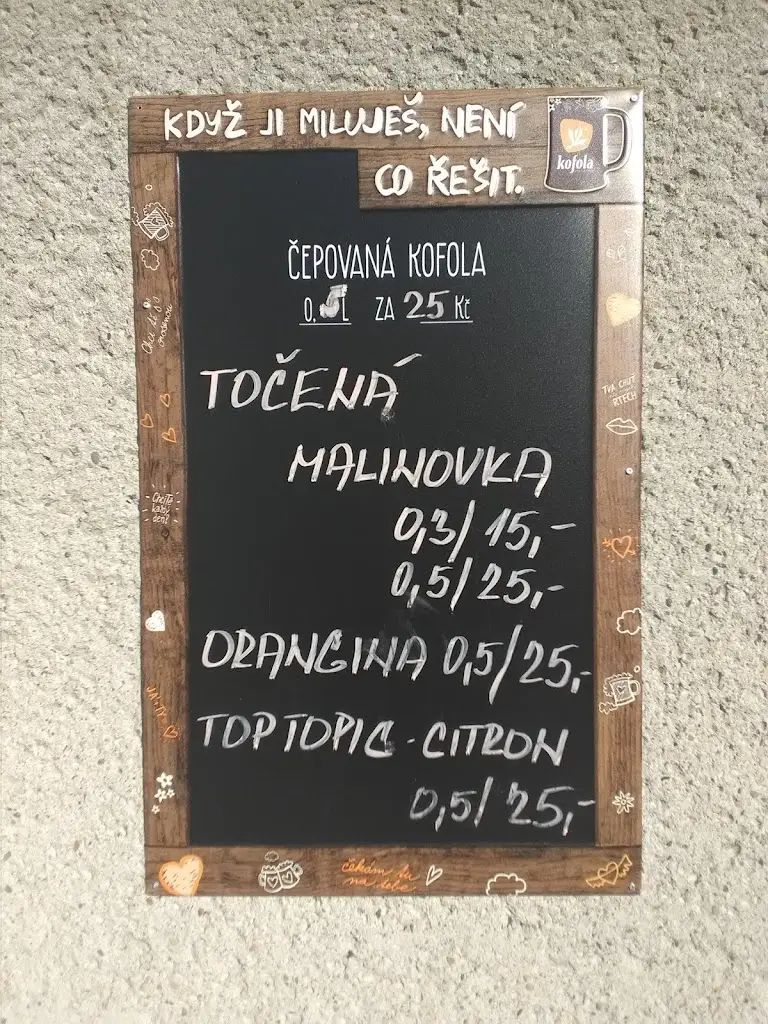 KDYŽ JI MILUJEŠ, NENÍ
CO ŘEŠIT.
kofola
ČEPOVANÁ KOFOLA
0,5L ZA 25 Kč
TOČENÁ
MALINOVKA
0,3/15,-
0,5/25,-
ORANGINA 0,5/25,-
TOPTOPIC - CITRON
0,5/25,-
TVÁ CHUŤ
RTECH
Chci Tě
každý
den!
čekám tu
na tebe